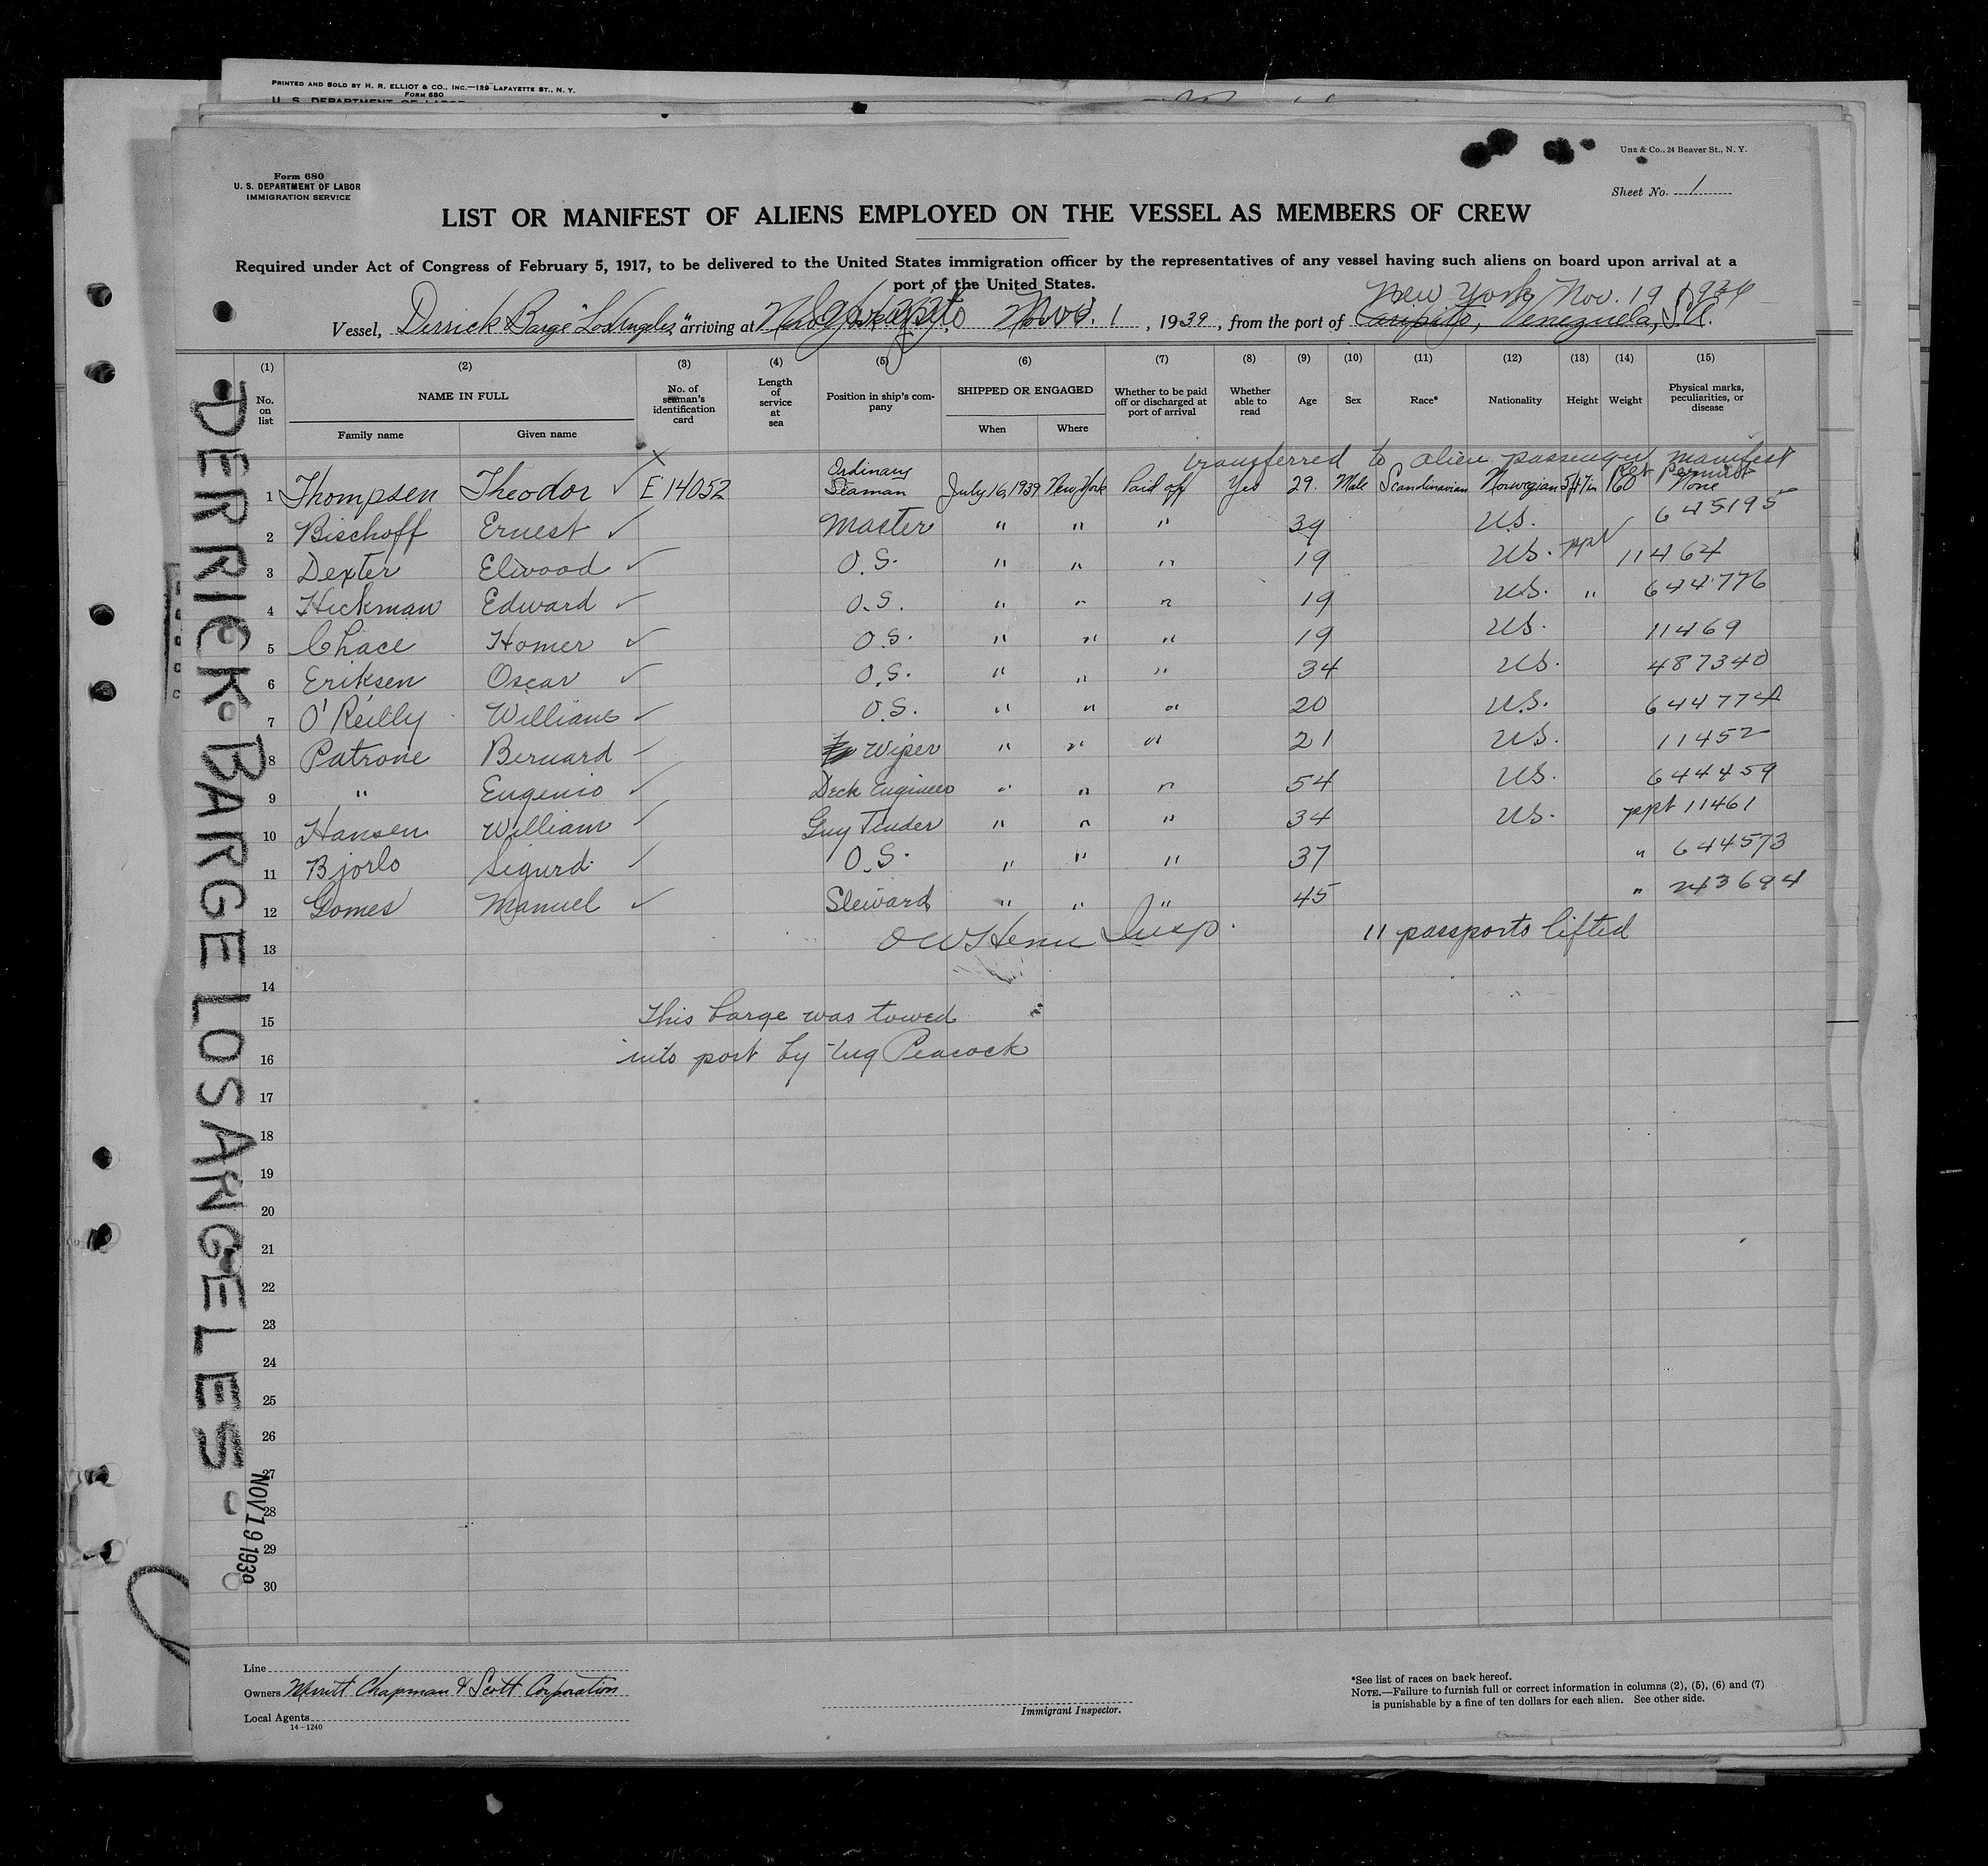 PRINTED AND SOLD BY H. R. ELLIOT & CO., INC.—129 LAFAYETTE ST., N. Y.
FORM 680
U. S. DEPARTMENT OF LABOR
Unz & Co., 24 Beaver St., N. Y.
Form 680
U. S. DEPARTMENT OF LABOR
IMMIGRATION SERVICE
Sheet No. 1
LIST OR MANIFEST OF ALIENS EMPLOYED ON THE VESSEL AS MEMBERS OF CREW
Required under Act of Congress of February 5, 1917, to be delivered to the United States immigration officer by the representatives of any vessel having such aliens on board upon arrival at a
port of the United States.
New York Nov. 19 1939
Vessel, Derrick Barge "Los Angeles," arriving at Nov. 1, 1939, from the port of Caripito, Venezuela, S.A.
(1) (2) (3) (4) (5) (6) (7) (8) (9) (10) (11) (12) (13) (14) (15)
No. on list NAME IN FULL Family name Given name No. of seaman's identification card Length of service at sea Position in ship's company SHIPPED OR ENGAGED When Where Whether to be paid off or discharged at port of arrival Whether able to read Age Sex Race* Nationality Height Weight Physical marks, peculiarities, or disease
transferred to alien passenger manifest
Ret Permit
1 Thompsen Theodor ✓ X E 14052 Ordinary Seaman July 16, 1939 New York Paid off Yes 29. Male Scandinavian Norwegian 5ft 7in 160 None
2 Bischoff Ernest ✓ Master " " " 39 U.S. 645195
3 Dexter Elwood ✓ O.S. " " " 19 U.S. ppt 11464
4 Hickman Edward ✓ O.S. " " " 19 U.S. " 644776
5 Chace Homer ✓ O.S. " " " 19 U.S. 11469
6 Eriksen Oscar ✓ O.S. " " " 34 U.S. 487340
7 O'Reilly William ✓ O.S. " " " 20 U.S. 644774
8 Patrone Bernard ✓ Wiper " " " 21 U.S. 11452
9 " Eugenio ✓ Deck Engineer " " " 54 U.S. 644459
10 Hansen William ✓ Guy Tender " " " 34 U.S. ppt 11461
11 Bjorlo Sigurd ✓ O.S. " " " 37 " 644573
12 Gomes Manuel ✓ Steward " " " 45 " 243694
13 Insp. 11 passports lifted
14
15 This barge was towed
16 into port by tug Peacock
17
18
19
20
21
22
23
24
25
26
27
28
29
30
DERRICK BARGE LOS ANGELES
NOV 19 1939
Line
Owners Merritt Chapman & Scott Corporation
Local Agents
14-1240
Immigrant Inspector.
*See list of races on back hereof.
NOTE.—Failure to furnish full or correct information in columns (2), (5), (6) and (7)
is punishable by a fine of ten dollars for each alien. See other side.